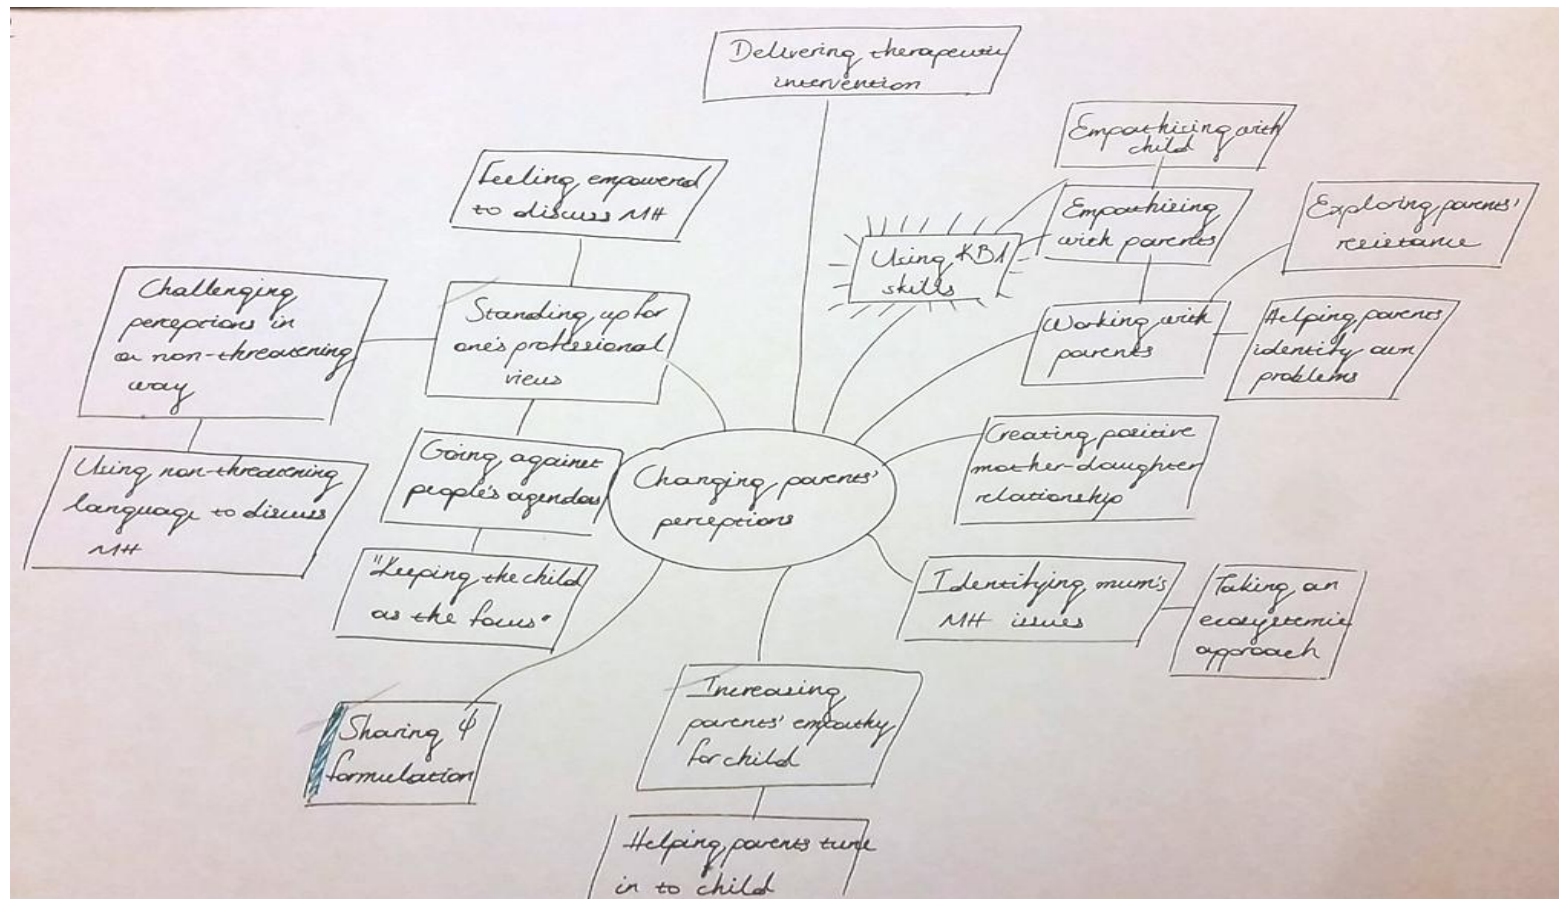 Delivering therapeutic
intervention
Empathising with
child
Feeling empowered
to discuss MH
Empathising
with parents
Exploring parents'
resistance
Using KB1
skills
Challenging
perceptions in
a non-threatening
way
Standing up for
one's professional
views
Working with
parents
Helping parents
identify own
problems
Using non-threatening
language to discuss
MH
Going against
people's agendas
Changing parents'
perceptions
Creating positive
mother-daughter
relationship
"Keeping the child
as the focus"
Identifying mum's
MH issues
Taking an
ecosystemic
approach
Sharing ψ
formulation
Increasing
parents' empathy
for child
Helping parents tune
in to child